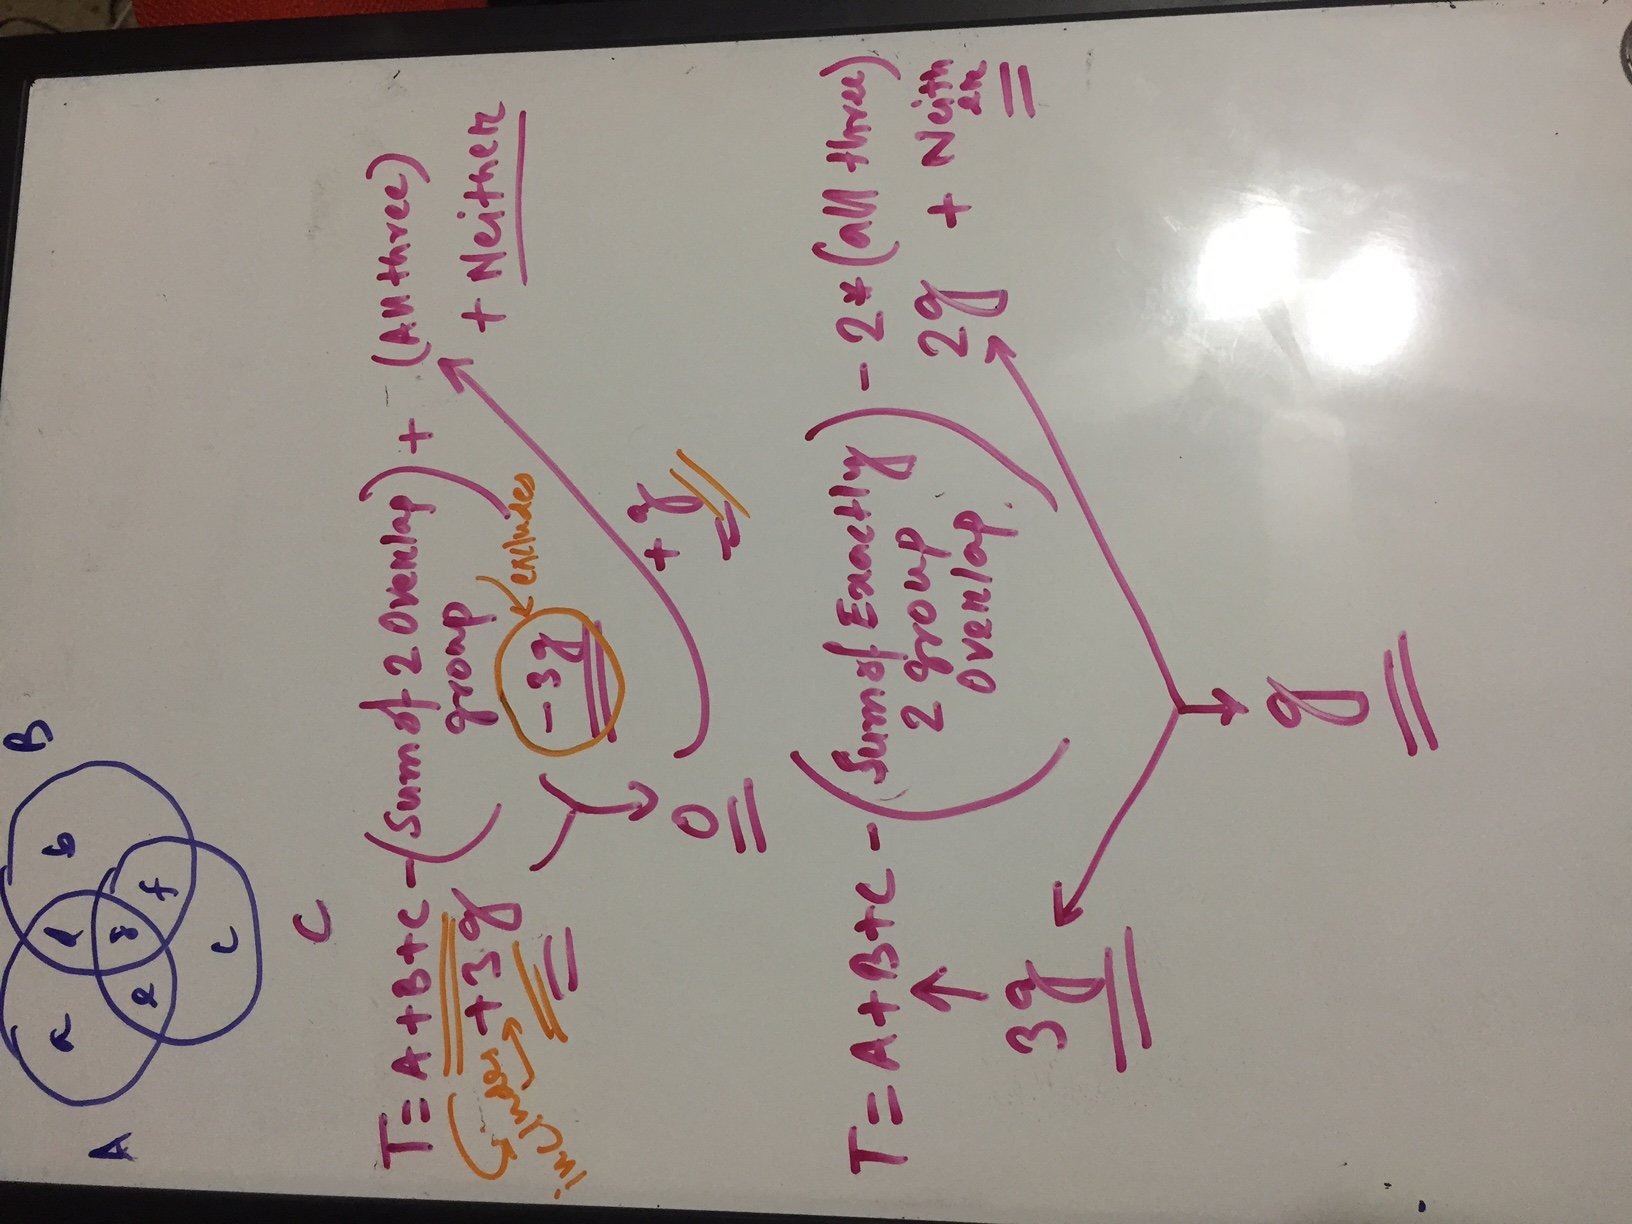 A
B
a
d
b
e
g
f
c
C
T = A+B+C - (Sum of 2 Overlap) + (All three)
group
+ Neither
includes
+3g
-3g
excludes
0
+ g
= g
T = A+B+C - (Sum of Exactly) - 2*(all three)
2 group
overlap.
3g
2g
+ Neith
er
g